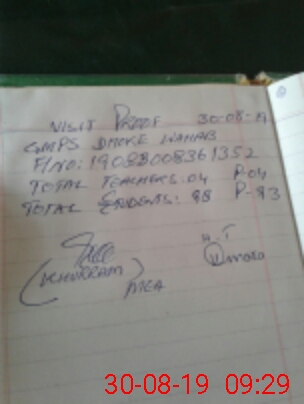 VISIT PROOF 30-08-19
GMPS DHOKE WAHAB
F/NO: 19082008361352
TOTAL TEACHERS: 04 P-04
TOTAL STUDENTS: 88 P-83
(KHURRAM)
MEA
30-08-19 09:29